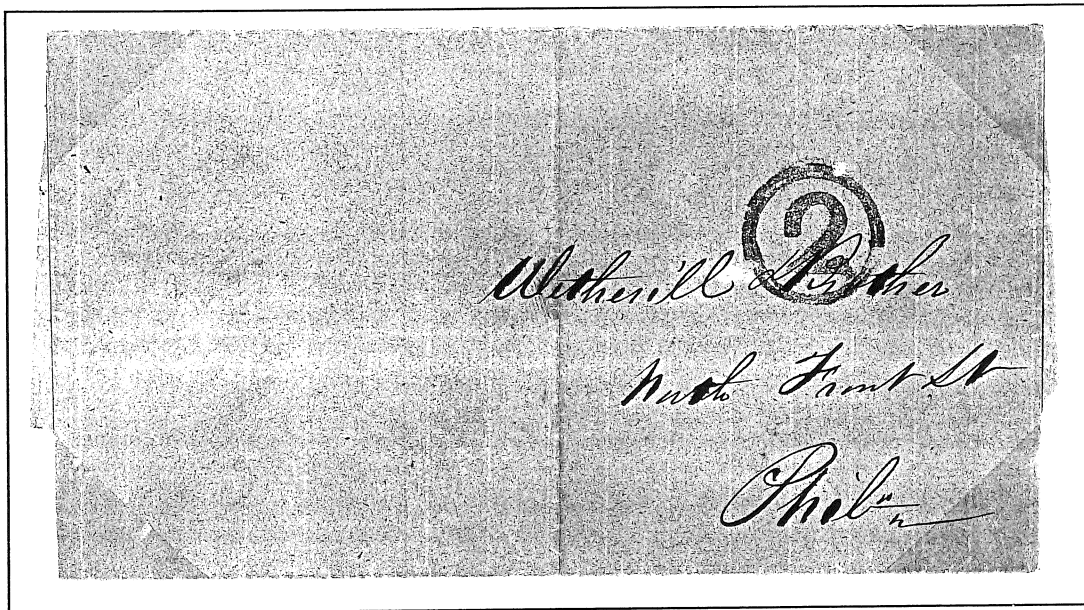 2
Wetherill & Brother
North Front St
Phila